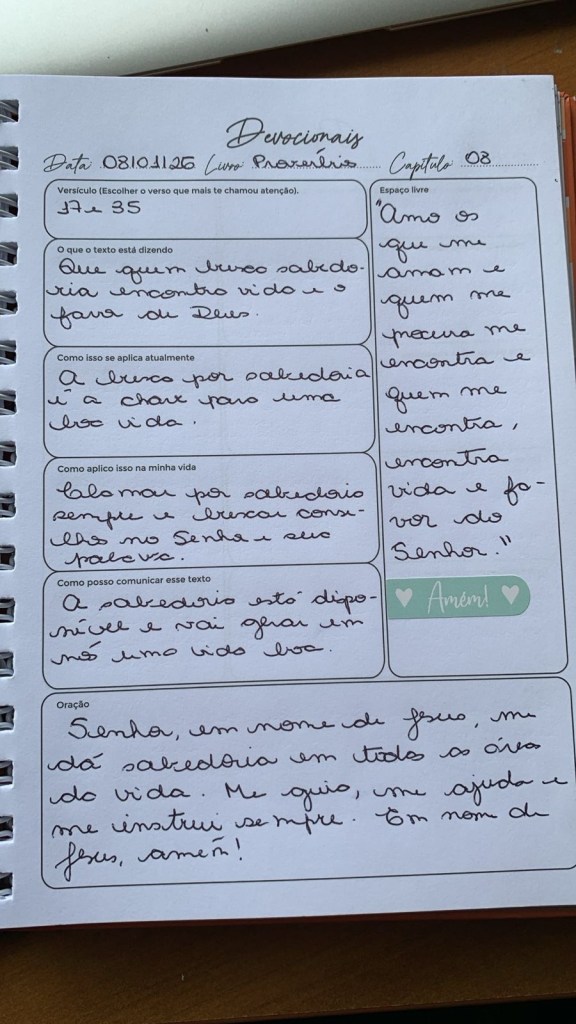 Devocionais
Data 08/01/26 Livro Provérbios Capítulo 08
Versículo (Escolher o verso que mais te chamou atenção).
17 e 35
O que o texto está dizendo
Que quem busca sabedo-
ria encontra vida e o
favor de Deus.
Como isso se aplica atualmente
A busca por sabedoria
é a chave para uma
boa vida.
Como aplico isso na minha vida
Clamar por sabedoria
sempre e buscar conse-
lho no Senhor e sua
palavra.
Como posso comunicar esse texto
A sabedoria está dispo-
nível e vai gerar em
nós uma vida boa.
Espaço livre
"Amo os
que me
amam e
quem me
procura me
encontra e
quem me
encontra,
encontra
vida e fa-
vor do
Senhor."
Amém!
Oração
Senhor, em nome de Jesus, me
dá sabedoria em todas as áreas
da vida. Me guia, me ajuda e
me instrui sempre. Em nome de
Jesus, amém!